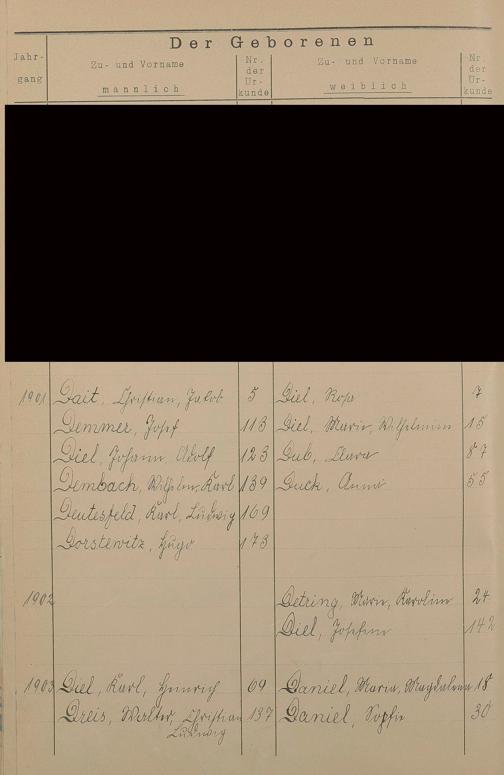 Der Geborenen
Jahr-
gang
Zu- und Vorname
männlich
Nr.
der
Ur-
kunde
Zu- und Vorname
weiblich
Nr.
der
Ur-
kunde
1901 Dait, Christian, Jakob 5 Diel, Rosa 7
Demmer, Josef 113 Diel, Maria, Wilhelmine 15
Diel, Johann Adolf 123 Dub, Klara 87
Dembach, Wilhelm Karl 139 Duck, Anna 55
Deutesfeld, Karl, Ludwig 169
Dorstewitz, Hugo 173
1902 Detring, Marie, Karoline 24
Diel, Josefine 142
1903 Diel, Karl, Heinrich 69 Daniel, Maria, Magdalena 18
Dreis, Walter, Christian 137 Daniel, Sophie 30
Ludwig